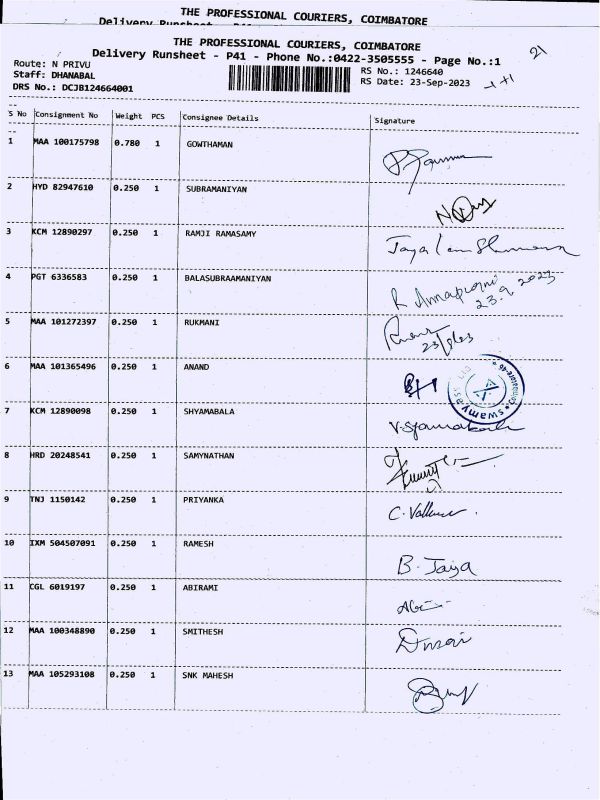 THE PROFESSIONAL COURIERS, COIMBATORE
Delivery Runsheet
THE PROFESSIONAL COURIERS, COIMBATORE
Delivery Runsheet - P41 - Phone No.:0422-3505555 - Page No.:1
21
Route: N PRIVU
RS No.: 1246640
Staff: DHANABAL
RS Date: 23-Sep-2023
-1 +1
DRS No.: DCJB124664001
S No Consignment No Weight PCS Consignee Details Signature
1 MAA 100175798 0.780 1 GOWTHAMAN
2 HYD 82947610 0.250 1 SUBRAMANIYAN
3 KCM 12890297 0.250 1 RAMJI RAMASAMY Jaya
4 PGT 6336583 0.250 1 BALASUBRAAMANIYAN R Annapurni
23.9.2023
5 MAA 101272397 0.250 1 RUKMANI
6 MAA 101365496 0.250 1 ANAND
Coimbatore-46
7 KCM 12890098 0.250 1 SHYAMABALA V. Syamabala
8 HRD 20248541 0.250 1 SAMYNATHAN
9 TNJ 1150142 0.250 1 PRIYANKA
10 IXM 504507091 0.250 1 RAMESH B. Jaya
11 CGL 6019197 0.250 1 ABIRAMI Abi
12 MAA 100348890 0.250 1 SMITHESH
13 MAA 105293108 0.250 1 SNK MAHESH